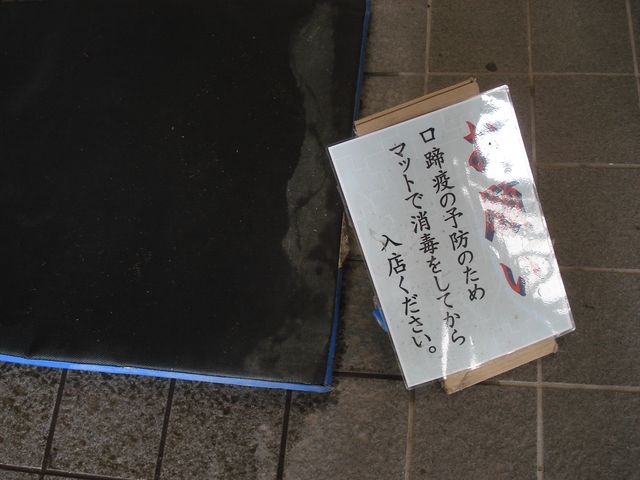 お願い
口蹄疫の予防のため
マットで消毒をしてから
入店ください。